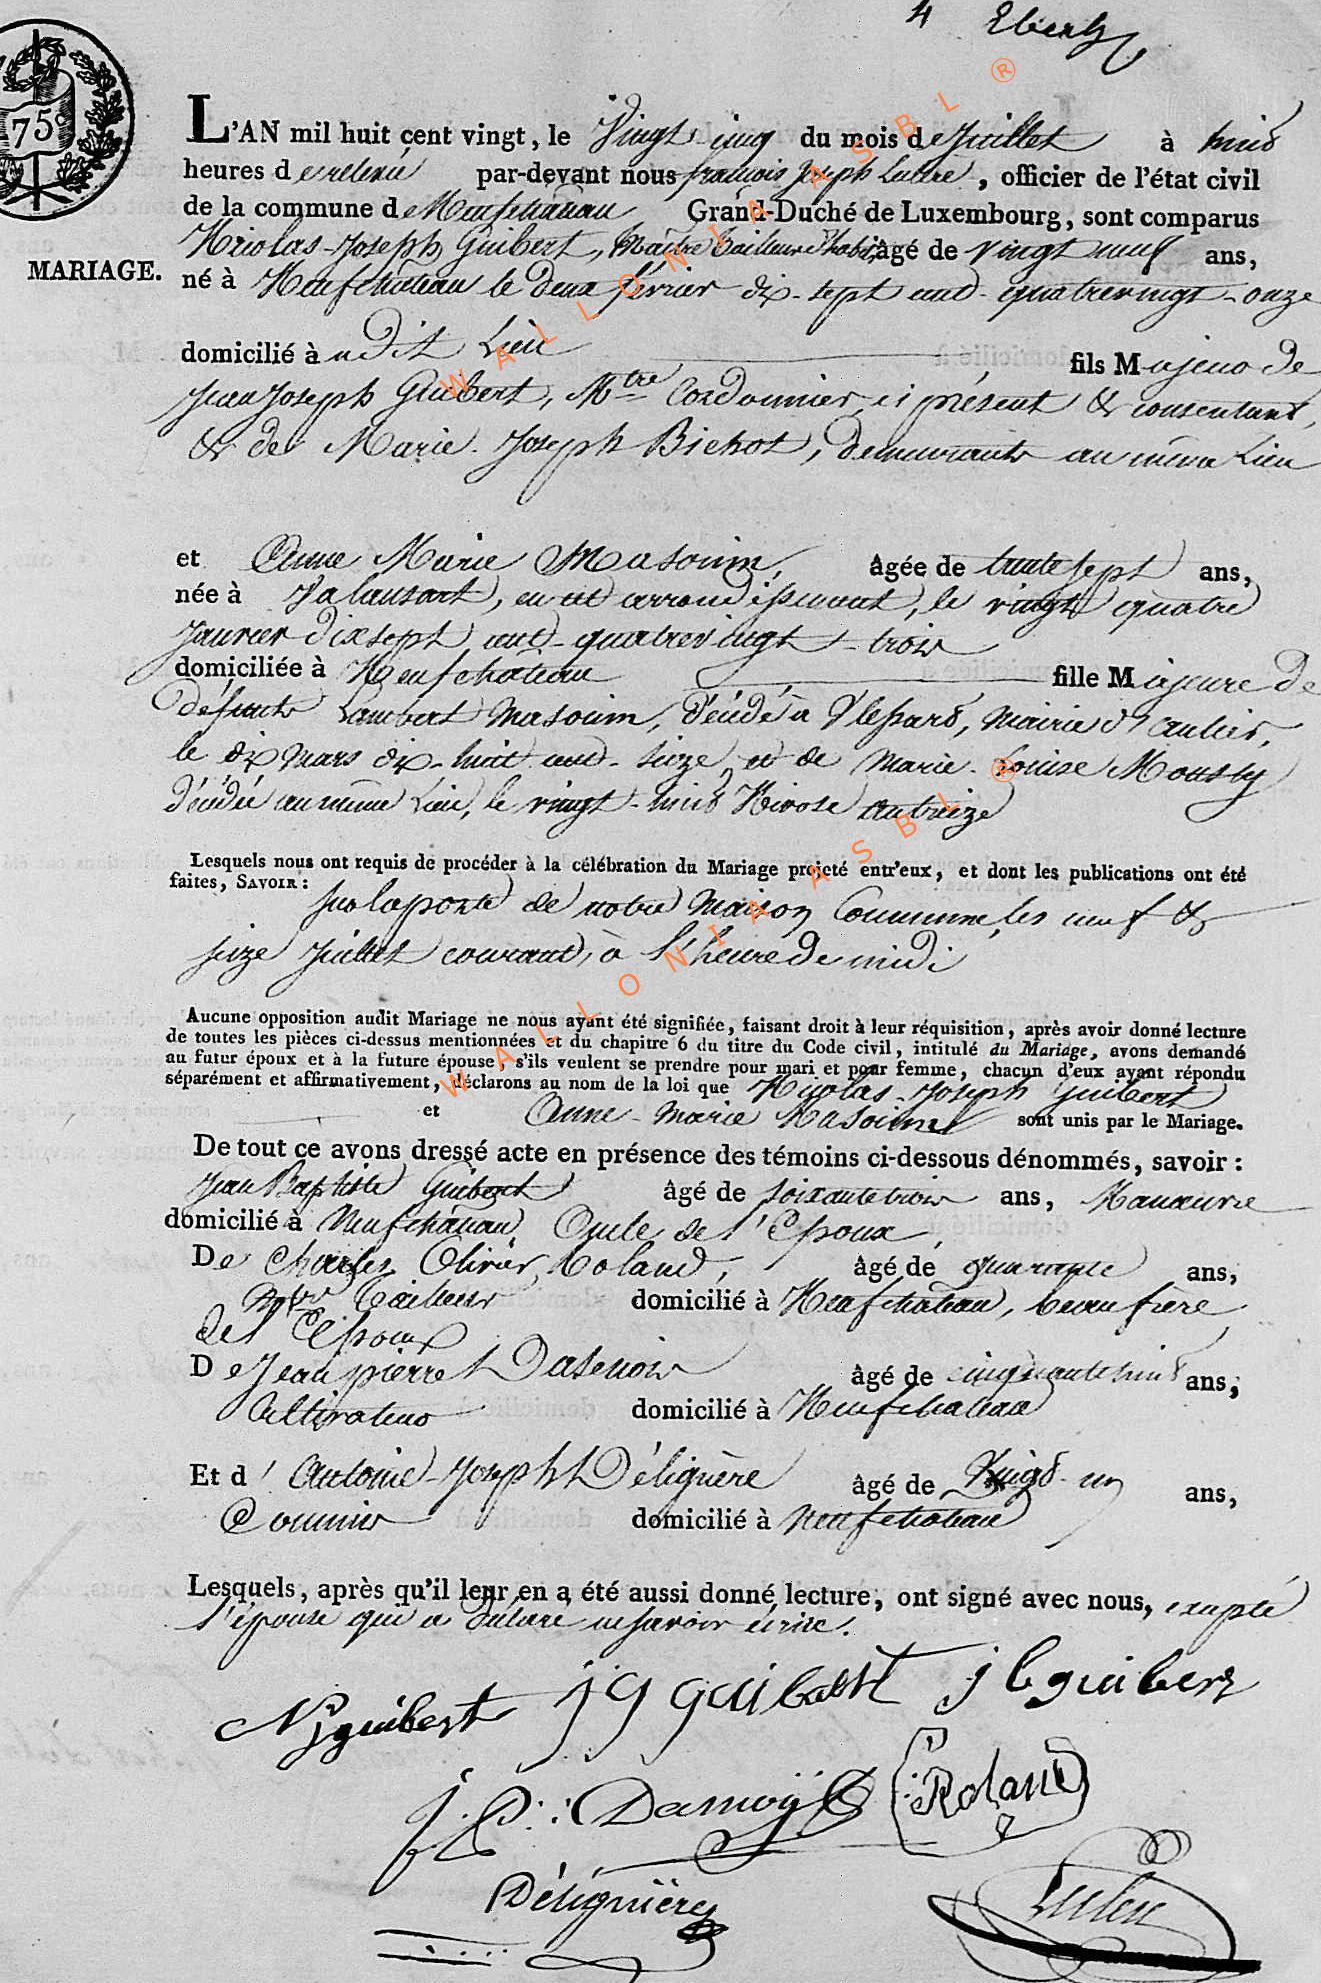 4
75c
L'AN mil huit cent vingt, le Vingt-cinq du mois de Juillet à huit
heures de relevée par-devant nous françois Joseph, officier de l'état civil
de la commune de Neufchâteau Grand-Duché de Luxembourg, sont comparus
Nicolas-Joseph Guibert, Maître tailleur d'habits, âgé de vingt neuf ans,
MARIAGE.
né à Neufchâteau le deux février dix-sept cent-quatrevingt-onze
domicilié àudit Lieu fils Majeur de
Jean Joseph Guibert, Mtre Cordonnier, ci présent & consentant,
& de Marie-Joseph Bichot, demeurants au même Lieu
et Anne Marie Masouin, âgée de trente sept ans,
née à Valansart, en cet arrondissement, le vingt quatre
Janvier dixsept cent-quatrevingt-trois
domiciliée à Neufchâteau fille Majeure de
défunts Lambert Masouin, décédé à Vlessart, Mairie d'anlier,
le dix Mars dix-huit cent-seize, et de Marie-Louise Moussy
décédée au même Lieu, le vingt-huit Nivose an treize
Lesquels nous ont requis de procéder à la célébration du Mariage projeté entr'eux, et dont les publications ont été
faites, SAVOIR:
sur la porte de notre Maison Commune, les neuf &
seize Juillet courant, à l'heure de midi
Aucune opposition audit Mariage ne nous ayant été signifiée, faisant droit à leur réquisition, après avoir donné lecture
de toutes les pièces ci-dessus mentionnées et du chapitre 6 du titre du Code civil, intitulé du Mariage, avons demandé
au futur époux et à la future épouse, s'ils veulent se prendre pour mari et pour femme, chacun d'eux ayant répondu
séparément et affirmativement, déclarons au nom de la loi que Nicolas-Joseph Guibert
et Anne-Marie Masouin sont unis par le Mariage.
De tout ce avons dressé acte en présence des témoins ci-dessous dénommés, savoir:
Jean Baptiste Guibert âgé de soixante trois ans, Manœuvre
domicilié à Neufchâteau, Oncle de l'Epoux,
De Charles Olivier Roland, âgé de quarante ans,
Tailleur domicilié à Neufchâteau, beau frère
de l'Epoux
De Jean pierre Dasenoix âgé de cinquante huit ans,
Cultivateur domicilié à Neufchateau
Et d'Antoine-Joseph Délignère âgé de Vingt-un ans,
Commis domicilié à Neufchateau
Lesquels, après qu'il leur en a été aussi donné lecture, ont signé avec nous, excepté
l'épouse qui a déclaré ne savoir écrire.
NJguibert jg guibert jbguibert
J.P. Roland
Délignière
WALLONIA ASBL ®
WALLONIA ASBL ®